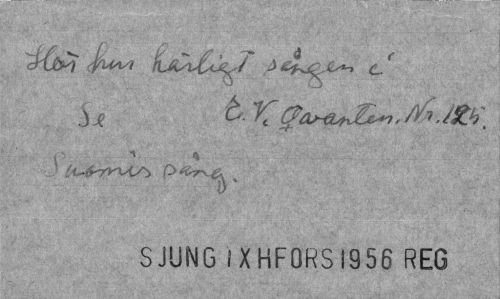 Hör hur härligt sången i
Se E. V. Qvanten. Nr. 125.
Suomis sång.
SJUNG IX HFORS 1956 REG